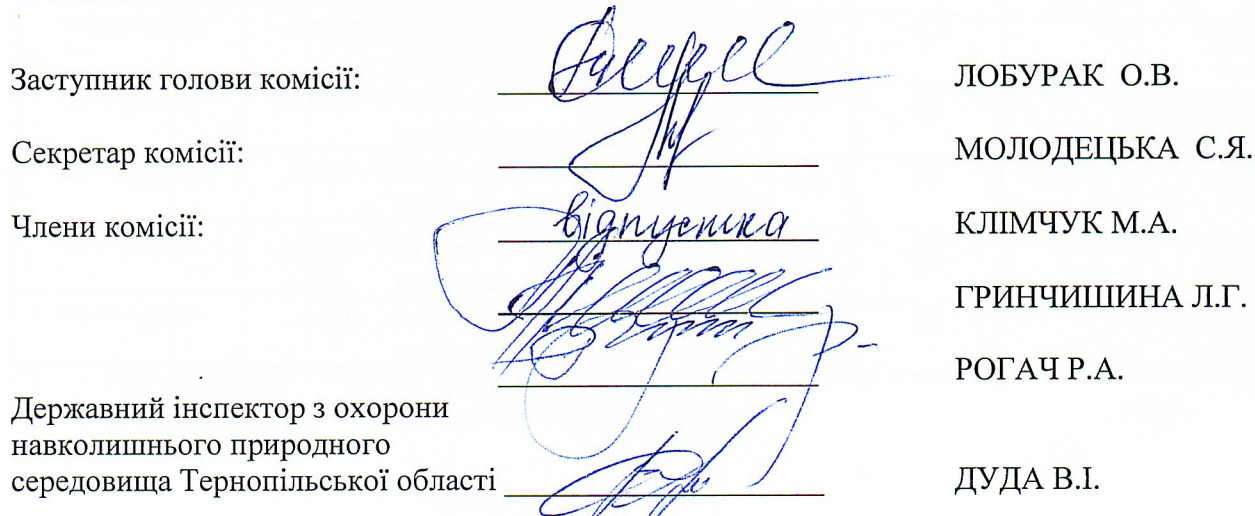 Заступник голови комісії: ЛОБУРАК О.В.
Секретар комісії: МОЛОДЕЦЬКА С.Я.
Члени комісії: відпустка КЛІМЧУК М.А.
ГРИНЧИШИНА Л.Г.
РОГАЧ Р.А.
Державний інспектор з охорони
навколишнього природного
середовища Тернопільської області ДУДА В.І.